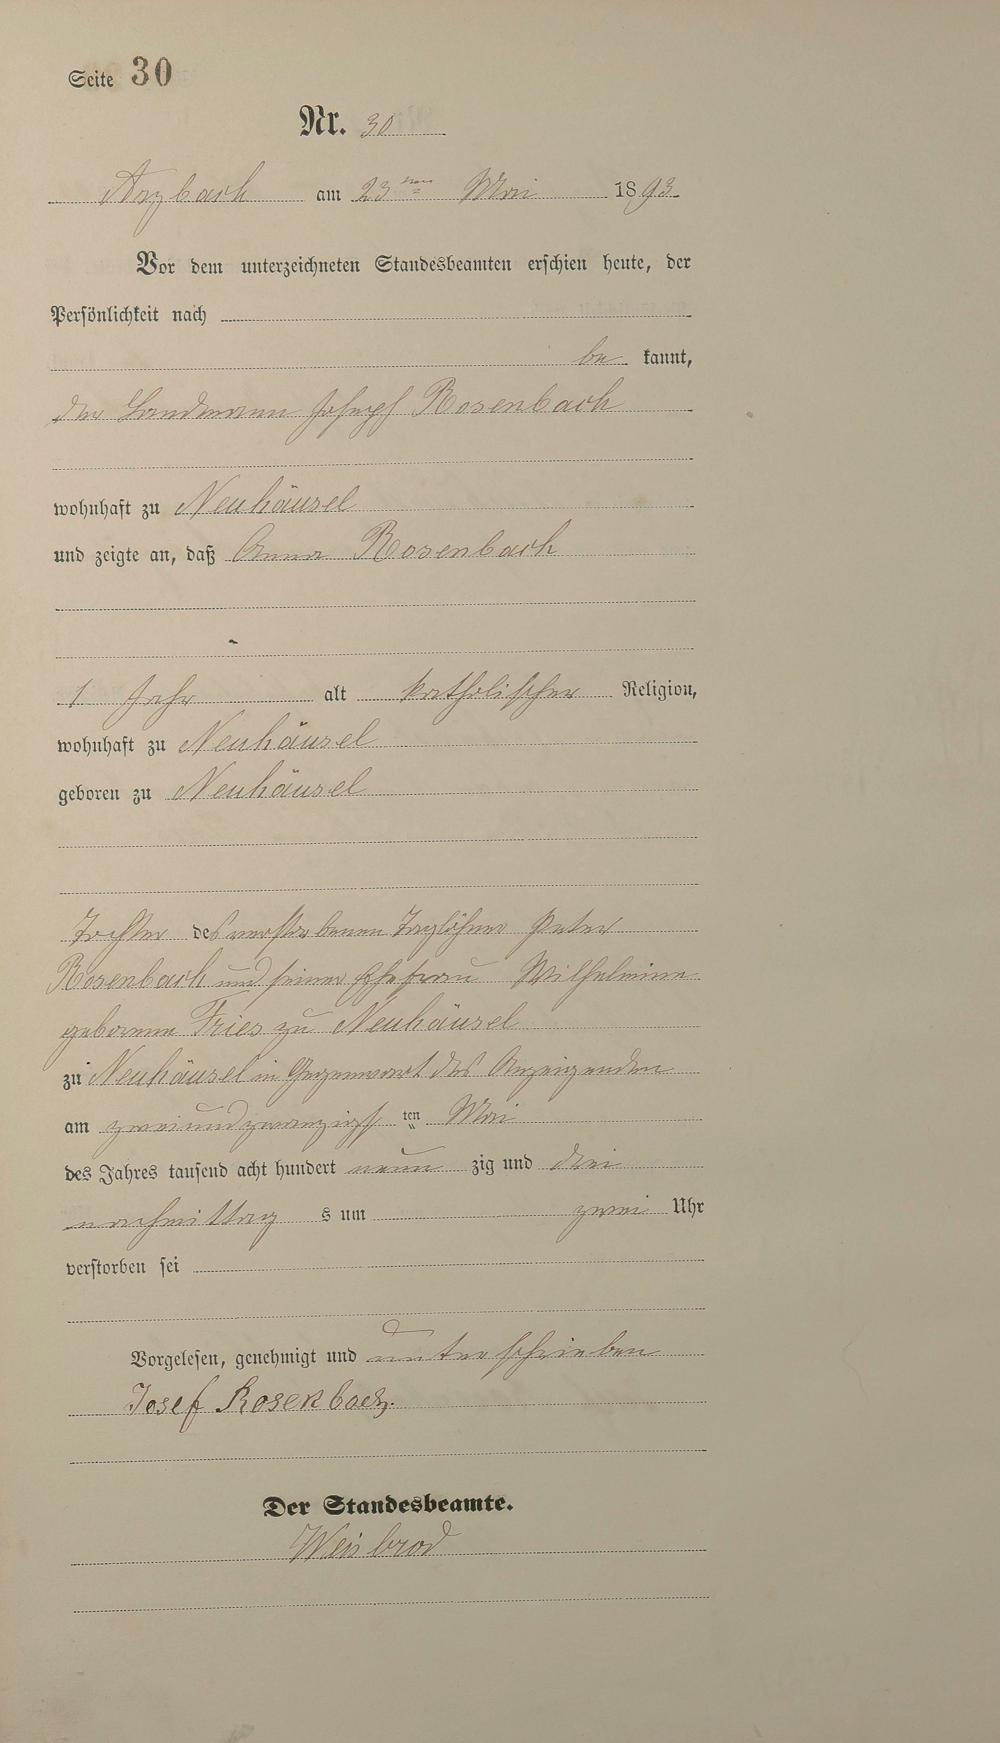 Seite 30
Nr. 30
Arzbach am 23ten Mai 1893
Vor dem unterzeichneten Standesbeamten erschien heute, der
Persönlichkeit nach
be kannt,
der Landmann Joseph Rosenbach
wohnhaft zu Neuhäusel
und zeigte an, daß Anna Rosenbach
1 Jahr alt katholischer Religion,
wohnhaft zu Neuhäusel
geboren zu Neuhäusel
Tochter des verstorbenen Taglöhner Peter
Rosenbach und seiner Ehefrau Wilhelmine
geborene Fries zu Neuhäusel
zu Neuhäusel in Gegenwart des Anzeigenden
am zweiundzwanzigst ten Mai
des Jahres tausend acht hundert neun zig und drei
nachmittag s um zwei Uhr
verstorben sei
Vorgelesen, genehmigt und unterschrieben
Josef Rosenbach.
Der Standesbeamte.
Weisbrod